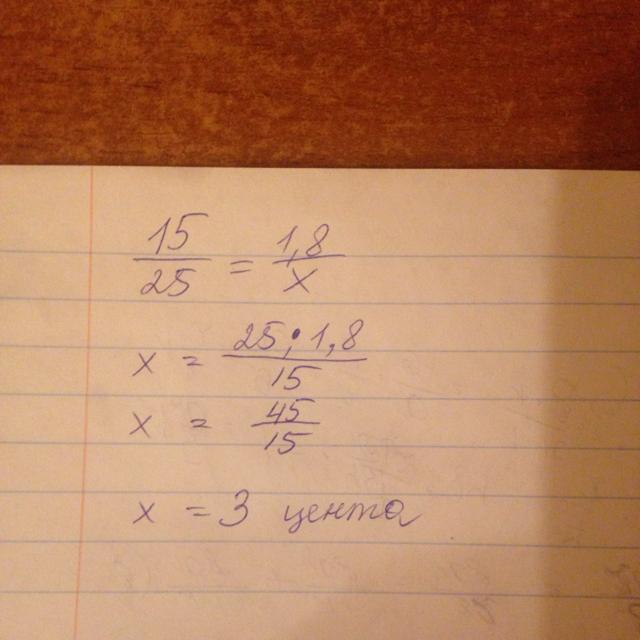 15/25 = 1,8/x
x = 25·1,8/15
x = 45/15
x = 3 цента